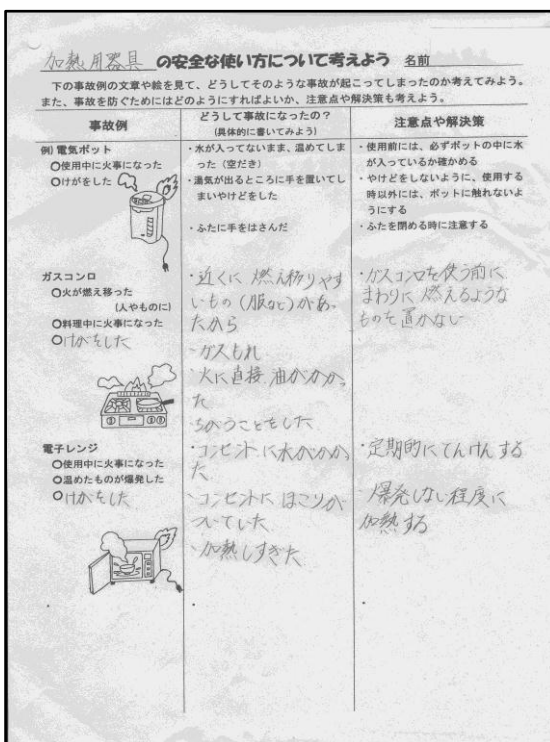 加熱用器具 の安全な使い方について考えよう 名前
下の事故例の文章や絵を見て、どうしてそのような事故が起こってしまったのか考えてみよう。
また、事故を防ぐためにはどのようにすればよいか、注意点や解決策も考えよう。
事故例
どうして事故になったの?
(具体的に書いてみよう)
注意点や解決策
例) 電気ポット
○使用中に火事になった
○けがをした
・水が入ってないまま、温めてしま
った(空だき)
・湯気が出るところに手を置いてし
まいやけどをした
・ふたに手をはさんだ
・使用前には、必ずポットの中に水
が入っているか確かめる
・やけどをしないように、使用する
時以外には、ポットに触れないよ
うにする
・ふたを閉める時に注意する
ガスコンロ
○火が燃え移った
(人やものに)
○料理中に火事になった
○けがをした
・近くに燃え移りやす
いもの(服など)があっ
たから
・ガスもれ
・火に直接油がかかっ
た
・ちがうことをした
・ガスコンロを使う前に
まわりに燃えるような
ものを置かない
電子レンジ
○使用中に火事になった
○温めたものが爆発した
○けがをした
・コンセントに水がかかっ
た
・コンセントにほこりが
ついていた
・加熱しすぎた
・定期的にてんけんする
・爆発しない程度に
加熱する